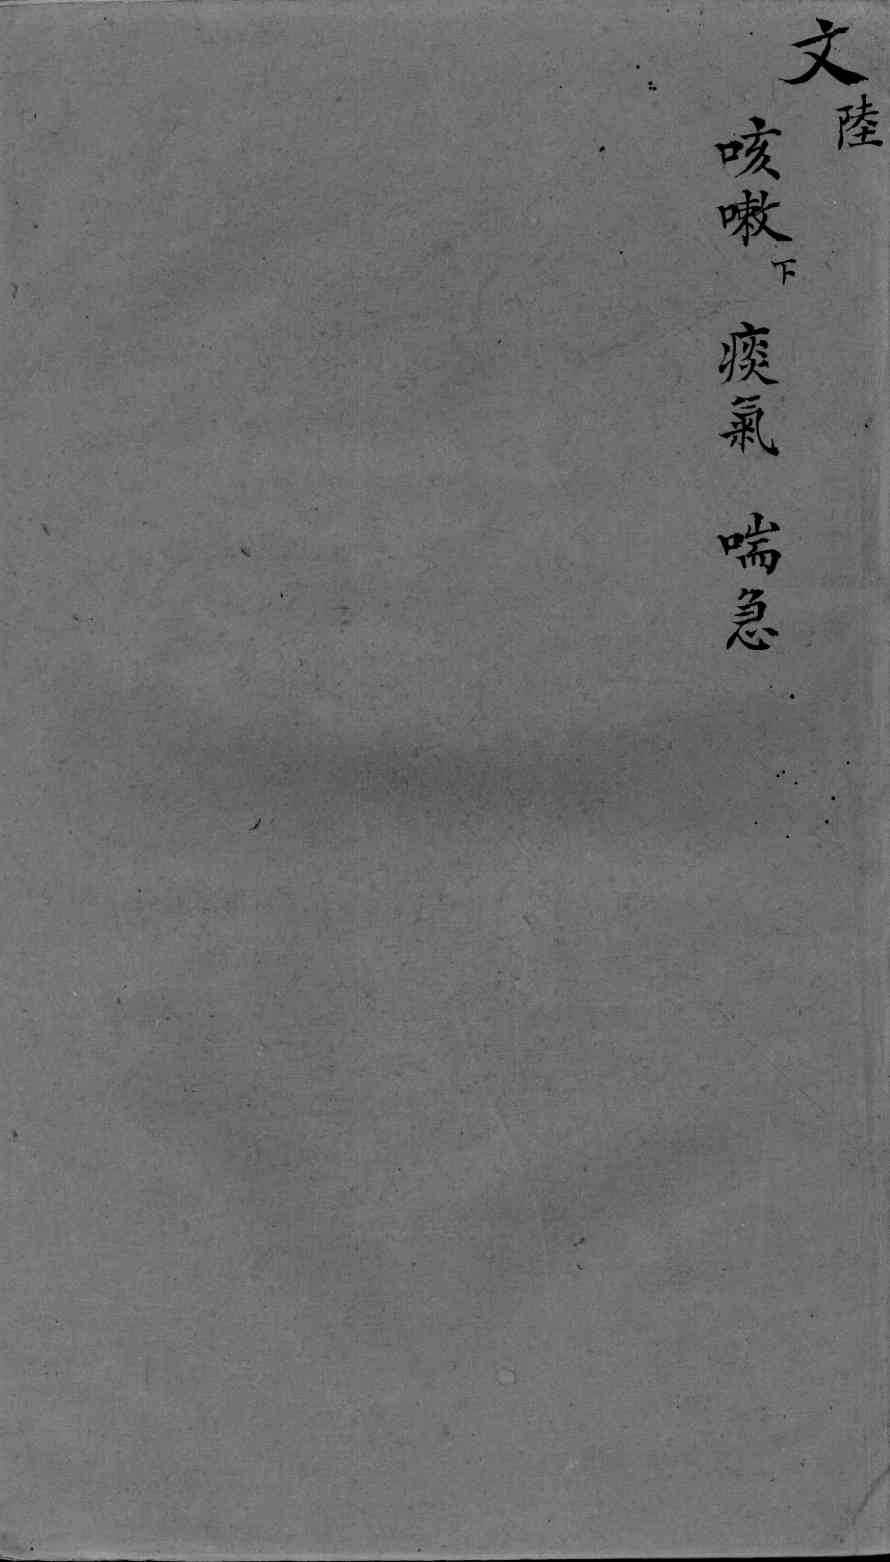 文陸
咳嗽下 痰氣 喘急